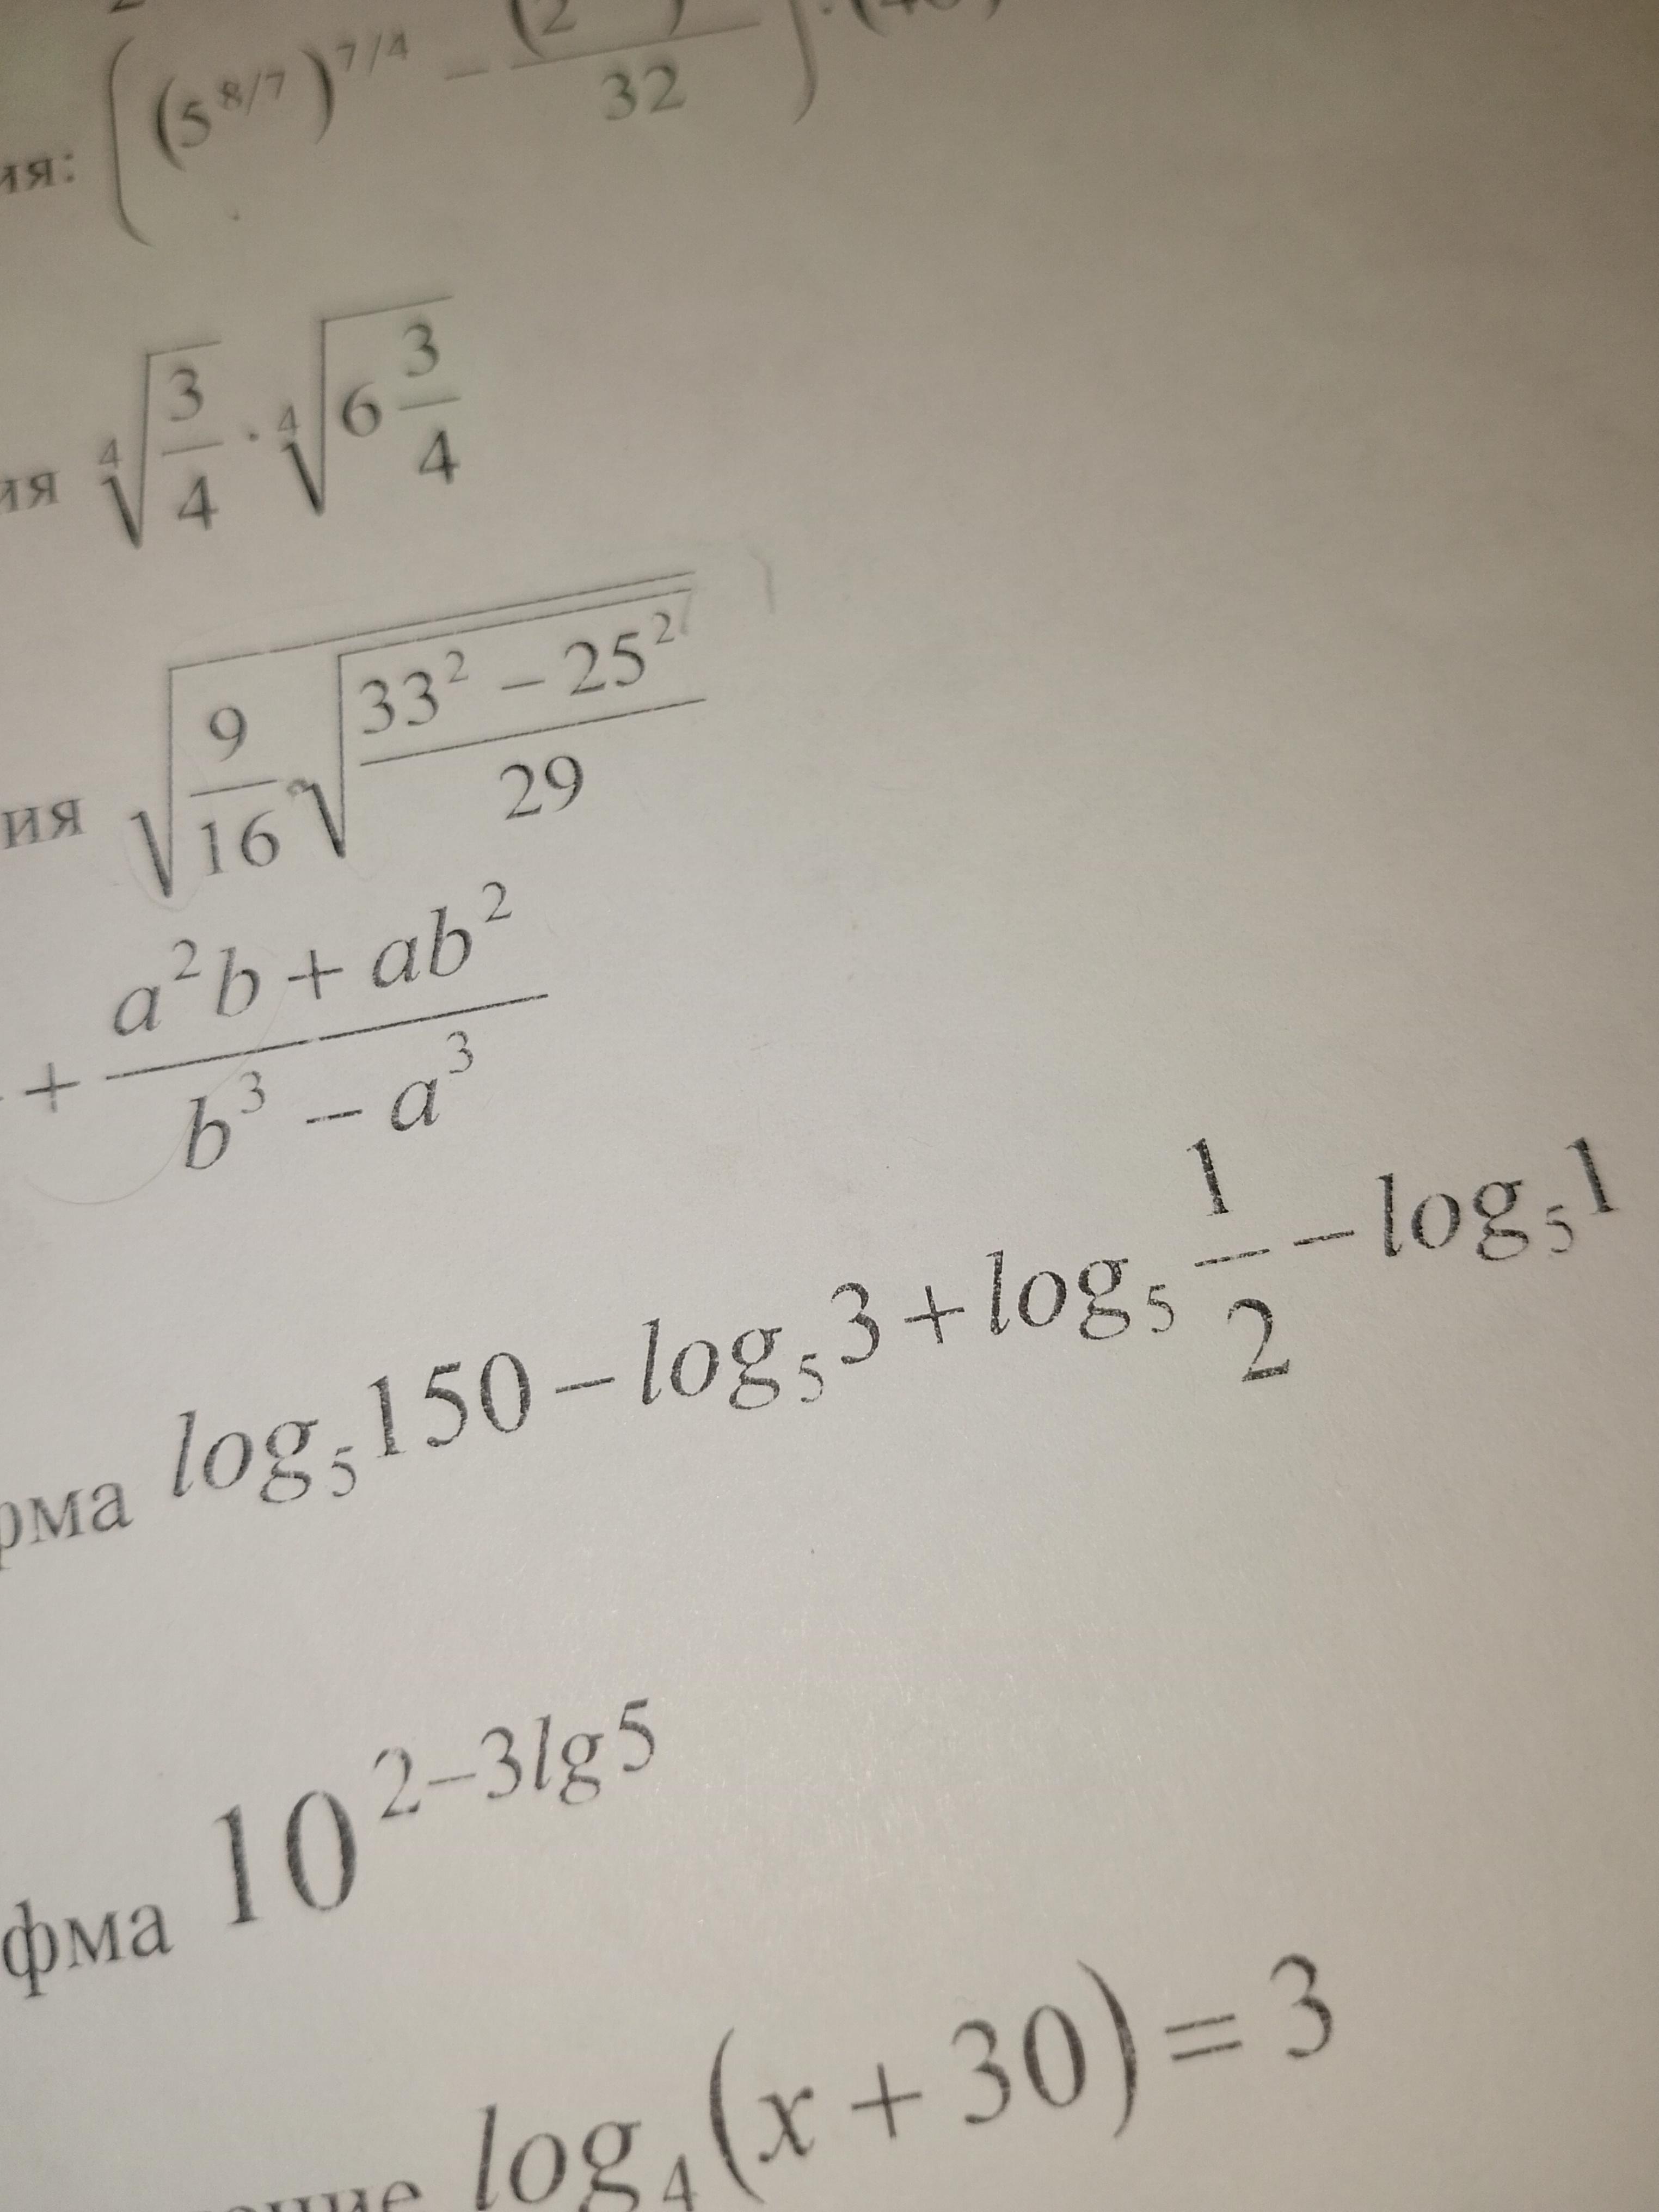 ия: ((5^{8/7})^{7/4} − (2 )/32)
ия ∜(3/4) · ∜(6 3/4)
ия √(9/16 √((33² − 25²)/29))
+ (a²b + ab²)/(b³ − a³)
рма log₅150 − log₅3 + log₅ 1/2 − log₅1
фма 10^{2−3lg5}
ение log₄(x + 30) = 3